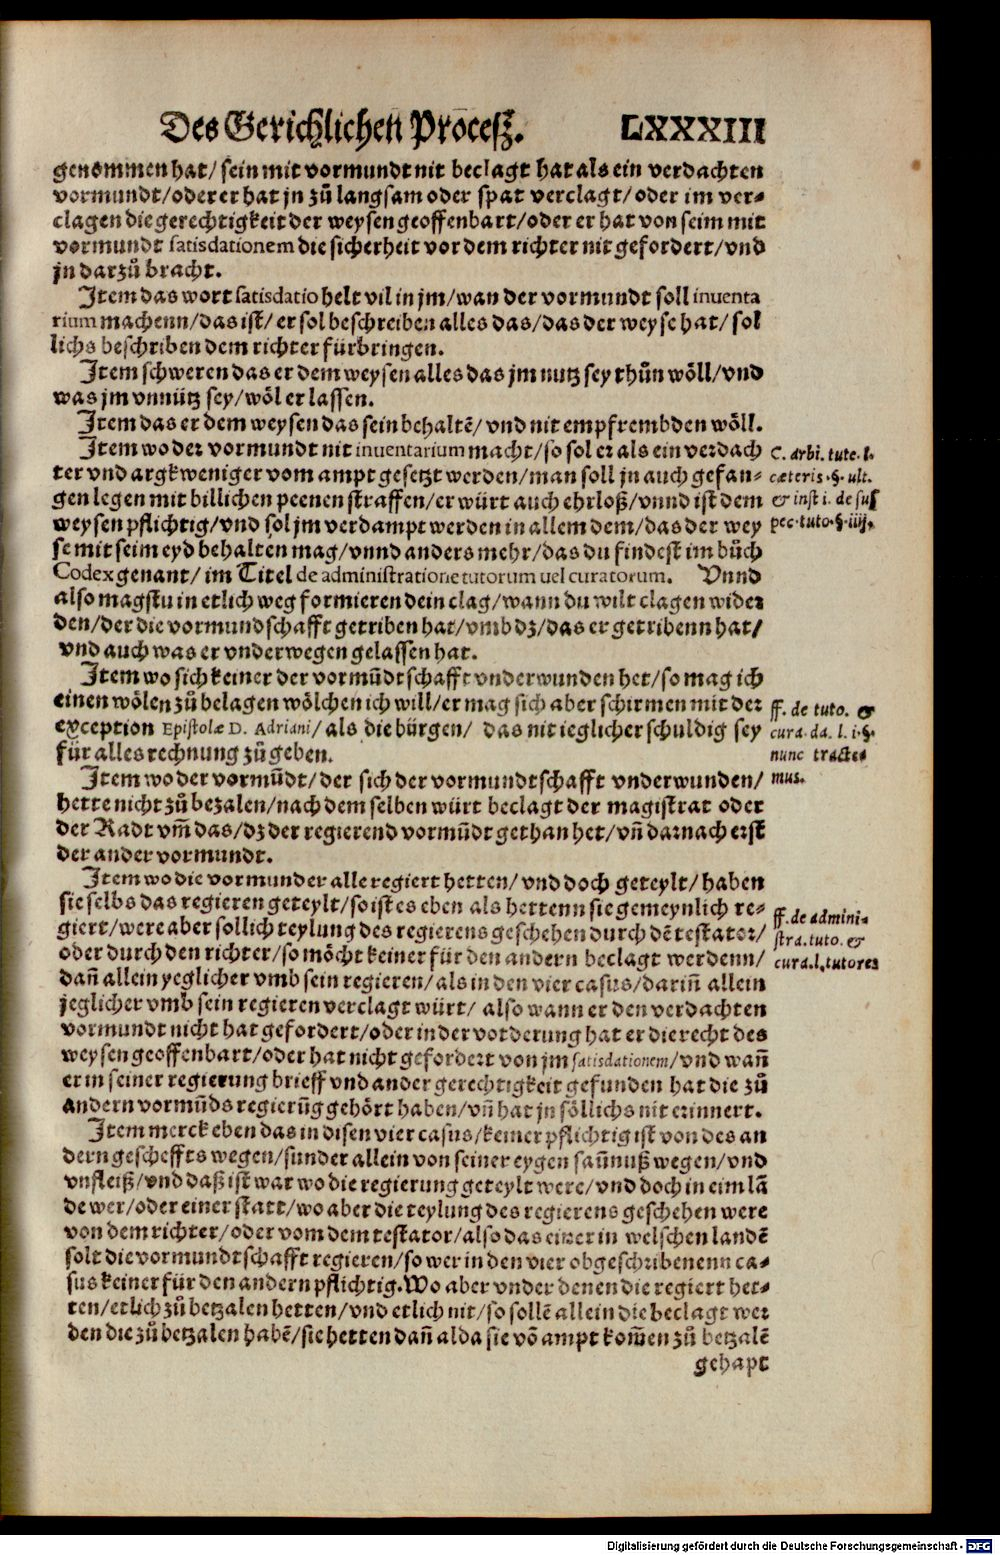 Des Gerichlichen Process. LXXXIII
genommen hat/ sein mit vormundt nit beclagt hat als ein verdachten
vormundt/oder er hat jn zů langsam oder spat verclagt/oder im ver-
clagen die gerechtigkeit der weysen geoffenbart/oder er hat von seim mit
vormundt satisdationem die sicherheit vor dem richter nit gefordert/vnd
jn darzů bracht.
Item das wort satisdatio helt vil in jm/wan der vormundt soll inuenta
rium machenn/das ist/ er sol beschreiben alles das/das der weyse hat/ sol
lichs beschriben dem richter fürbringen.
Item schweren das er dem weysen alles das jm nutz sey thůn wöll/vnd
was jm vnnütz sey/wöl er lassen.
Item das er dem weysen das sein behaltē/ vnd nit empfrembden wöll.
Item wo der vormundt nit inuentarium macht/so sol er als ein verdach
ter vnd argkweniger vom ampt gesetzt werden/man soll jn auch gefan-
gen legen mit billichen peenen straffen/er würt auch ehrloß/vnnd ist dem
weysen pflichtig/vnd sol jm verdampt werden in allem dem/das der wey
se mit seim eyd behalten mag/vnnd anders mehr/das du findest im bůch
Codex genant/ im Titel de administratione tutorum uel curatorum. Vnnd
also magstu in etlich weg formieren dein clag/wann du wilt clagen wider
den/der die vormundschafft getriben hat/vmb dz/das er getribenn hat/
vnd auch was er vnderwegen gelassen hat.
C. arbi. tute. l.
cæteris.§. ult.
& inst i. de sus
pec. tuto.§. iiij.
Item wo sich keiner der vormūdtschafft vnderwunden het/so mag ich
einen wölen zů belagen wölchen ich will/er mag sich aber schirmen mit der
exception Epistolæ D. Adriani/ als die bürgen/ das nit ieglicher schuldig sey
für alles rechnung zů geben.
ff. de tuto. &
cura. da. l. i.§.
nunc tracte-
mus.
Item wo der vormūdt/der sich der vormundtschafft vnderwunden/
hette nicht zů bezalen/nach dem selben würt beclagt der magistrat oder
der Radt vm̄ das/dz der regierend vormūdt gethan het/vn̄ darnach erst
der ander vormundt.
Item wo die vormunder alle regiert hetten/vnd doch geteylt/haben
sie selbs das regieren geteylt/so ist es eben als hettenn sie gemeynlich re-
giert/were aber sollich teylung des regierens geschehen durch dē testator/
oder durch den richter/so möcht keiner für den andern beclagt werdenn/
dan̄ allein yeglicher vmb sein regieren/als in den vier casus/darin̄ allein
jeglicher vmb sein regieren verclagt würt/ also wann er den verdachten
vormundt nicht hat gefordert/oder in der vorderung hat er die recht des
weysen geoffenbart/oder hat nicht gefordert von jm satisdationem/vnd wan̄
er in seiner regierung brieff vnd ander gerechtigkeit gefunden hat die zů
andern vormūds regierūg gehört haben/vn̄ hat jn söllichs nit erinnert.
ff. de admini-
stra. tuto. &
cura.l.tutores
Item merck eben das in disen vier casus/keiner pflichtig ist von des an
dern gescheffts wegen/sunder allein von seiner eygen saūnuß wegen/vnd
vnfleiß/vnd daß ist war wo die regierung geteylt were/vnd doch in eim lā
de wer/oder einer statt/wo aber die teylung des regierens geschehen were
von dem richter/oder vom dem testator/also das einer in welschen landē
solt die vormundtschafft regieren/so wer in den vier obgeschribenenn ca-
sus keiner für den andern pflichtig. Wo aber vnder denen die regiert het-
ten/etlich zů betzalen hetten/vnd etlich nit/so sollē allein die beclagt wer
den die zů betzalen habē/sie hetten dan̄ alda sie vō ampt kom̄en zů betzalē
gehapt
Digitalisierung gefördert durch die Deutsche Forschungsgemeinschaft - DFG